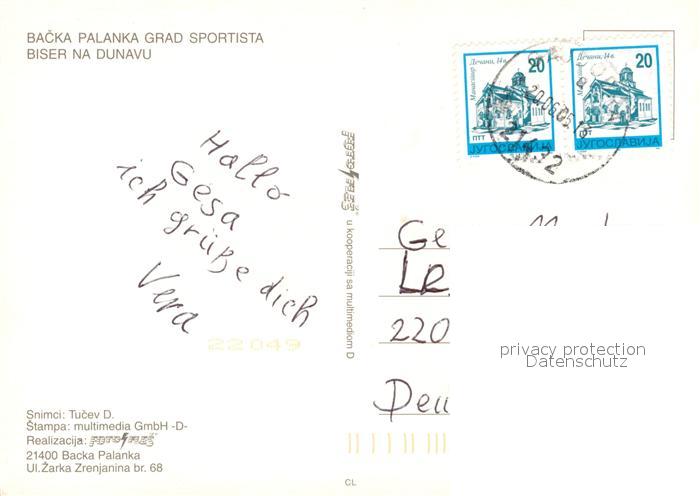 BAČKA PALANKA GRAD SPORTISTA
BISER NA DUNAVU
Манастир Дечани, 14в.
20
ПТТ
ЈУГОСЛАВИЈА
Манастир Дечани, 14в.
20
ПТТ
ЈУГОСЛАВИЈА
Hallo
Gesa
ich grüße dich
Vera
22049
u kooperaciji sa multimediom D
Ge
LR
220
privacy protection
Datenschutz
Snimci: Tučev D.
Štampa: multimedia GmbH -D-
Realizacija:
21400 Backa Palanka
Ul.Žarka Zrenjanina br. 68
CL